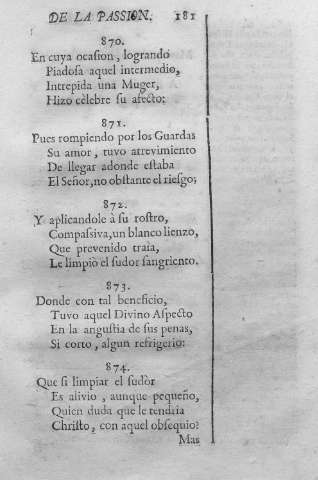 DE LA PASSION. 181
870.
En cuya ocasion, logrando
Piadosa aquel intermedio,
Intrepida una Muger,
Hizo cèlebre su afecto:
871.
Pues rompiendo por los Guardas
Su amor, tuvo atrevimiento
De llegar adonde estaba
El Señor, no obstante el riesgo;
872.
Y aplicandole à su rostro,
Compassiva, un blanco lienzo,
Que prevenido traìa,
Le limpiò el sudor sangriento.
873.
Donde con tal beneficio,
Tuvo aquel Divino Aspecto
En la angustia de sus penas,
Si corto, algun refrigerio:
874.
Que si limpiar el sudòr
Es alivio, aunque pequeño,
Quien duda que le tendria
Christo, con aquel obsequio?
Mas